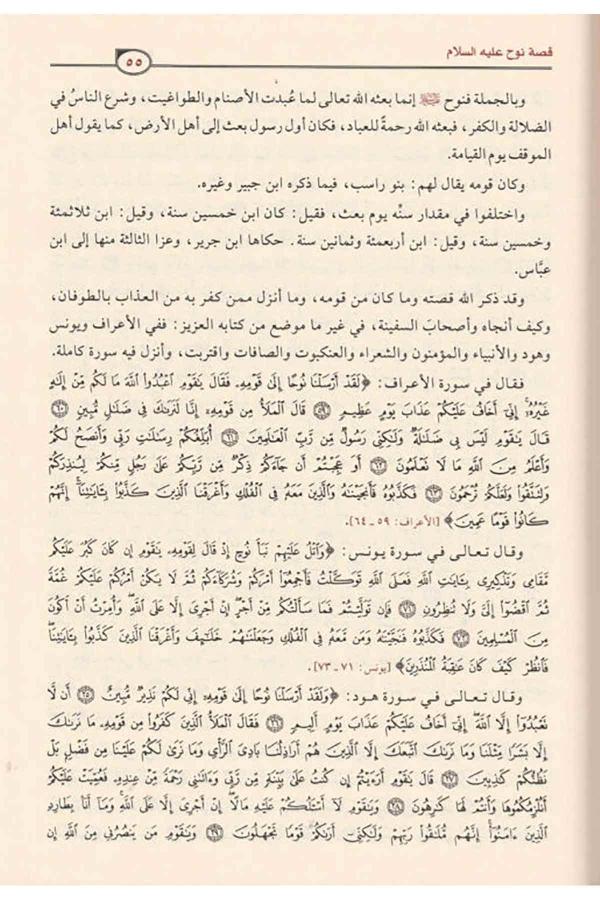 قصة نوح عليه السلام
٥٥
وبالجملة فنوح ﷺ إنما بعثه الله تعالى لما عُبدت الأصنام والطواغيت، وشرع الناسُ في
الضلالة والكفر، فبعثه الله رحمةً للعباد، فكان أول رسول بعث إلى أهل الأرض، كما يقول أهل
الموقف يوم القيامة.
وكان قومه يقال لهم: بنو راسب، فيما ذكره ابن جبير وغيره.
واختلفوا في مقدار سنِّه يوم بعث، فقيل: كان ابن خمسين سنة، وقيل: ابن ثلاثمئة
وخمسين سنة، وقيل: ابن أربعمئة وثمانين سنة. حكاها ابن جرير، وعزا الثالثة منها إلى ابن
عبَّاس.
وقد ذكر الله قصته وما كان من قومه، وما أنزل ممن كفر به من العذاب بالطوفان،
وكيف أنجاه وأصحابَ السفينة، في غير ما موضع من كتابه العزيز: ففي الأعراف ويونس
وهود والأنبياء والمؤمنون والشعراء والعنكبوت والصافات واقتربت، وأنزل فيه سورة كاملة.
فقال في سورة الأعراف: ﴿لَقَدْ أَرْسَلْنَا نُوحًا إِلَىٰ قَوْمِهِۦ فَقَالَ يَٰقَوْمِ ٱعْبُدُوا۟ ٱللَّهَ مَا لَكُم مِّنْ إِلَٰهٍ
غَيْرُهُۥٓ إِنِّىٓ أَخَافُ عَلَيْكُمْ عَذَابَ يَوْمٍ عَظِيمٍ ۝٥٩ قَالَ ٱلْمَلَأُ مِن قَوْمِهِۦٓ إِنَّا لَنَرَىٰكَ فِى ضَلَٰلٍ مُّبِينٍ ۝٦٠
قَالَ يَٰقَوْمِ لَيْسَ بِى ضَلَٰلَةٌ وَلَٰكِنِّى رَسُولٌ مِّن رَّبِّ ٱلْعَٰلَمِينَ ۝٦١ أُبَلِّغُكُمْ رِسَٰلَٰتِ رَبِّى وَأَنصَحُ لَكُمْ
وَأَعْلَمُ مِنَ ٱللَّهِ مَا لَا تَعْلَمُونَ ۝٦٢ أَوَ عَجِبْتُمْ أَن جَآءَكُمْ ذِكْرٌ مِّن رَّبِّكُمْ عَلَىٰ رَجُلٍ مِّنكُمْ لِيُنذِرَكُمْ
وَلِتَتَّقُوا۟ وَلَعَلَّكُمْ تُرْحَمُونَ ۝٦٣ فَكَذَّبُوهُ فَأَنجَيْنَٰهُ وَٱلَّذِينَ مَعَهُۥ فِى ٱلْفُلْكِ وَأَغْرَقْنَا ٱلَّذِينَ كَذَّبُوا۟ بِـَٔايَٰتِنَآ إِنَّهُمْ
كَانُوا۟ قَوْمًا عَمِينَ﴾ [الأعراف: ٥٩ ـ ٦٤].
وقال تعالى في سورة يونس: ﴿وَٱتْلُ عَلَيْهِمْ نَبَأَ نُوحٍ إِذْ قَالَ لِقَوْمِهِۦ يَٰقَوْمِ إِن كَانَ كَبُرَ عَلَيْكُم
مَّقَامِى وَتَذْكِيرِى بِـَٔايَٰتِ ٱللَّهِ فَعَلَى ٱللَّهِ تَوَكَّلْتُ فَأَجْمِعُوٓا۟ أَمْرَكُمْ وَشُرَكَآءَكُمْ ثُمَّ لَا يَكُنْ أَمْرُكُمْ عَلَيْكُمْ غُمَّةً
ثُمَّ ٱقْضُوٓا۟ إِلَىَّ وَلَا تُنظِرُونِ ۝٧١ فَإِن تَوَلَّيْتُمْ فَمَا سَأَلْتُكُم مِّنْ أَجْرٍ إِنْ أَجْرِىَ إِلَّا عَلَى ٱللَّهِ وَأُمِرْتُ أَنْ أَكُونَ
مِنَ ٱلْمُسْلِمِينَ ۝٧٢ فَكَذَّبُوهُ فَنَجَّيْنَٰهُ وَمَن مَّعَهُۥ فِى ٱلْفُلْكِ وَجَعَلْنَٰهُمْ خَلَٰٓئِفَ وَأَغْرَقْنَا ٱلَّذِينَ كَذَّبُوا۟ بِـَٔايَٰتِنَا
فَٱنظُرْ كَيْفَ كَانَ عَٰقِبَةُ ٱلْمُنذَرِينَ﴾ [يونس: ٧١ ـ ٧٣].
وقال تعالى في سورة هود: ﴿وَلَقَدْ أَرْسَلْنَا نُوحًا إِلَىٰ قَوْمِهِۦٓ إِنِّى لَكُمْ نَذِيرٌ مُّبِينٌ ۝٢٥ أَن لَّا
تَعْبُدُوٓا۟ إِلَّا ٱللَّهَ إِنِّىٓ أَخَافُ عَلَيْكُمْ عَذَابَ يَوْمٍ أَلِيمٍ ۝٢٦ فَقَالَ ٱلْمَلَأُ ٱلَّذِينَ كَفَرُوا۟ مِن قَوْمِهِۦ مَا نَرَىٰكَ
إِلَّا بَشَرًا مِّثْلَنَا وَمَا نَرَىٰكَ ٱتَّبَعَكَ إِلَّا ٱلَّذِينَ هُمْ أَرَاذِلُنَا بَادِىَ ٱلرَّأْىِ وَمَا نَرَىٰ لَكُمْ عَلَيْنَا مِن فَضْلٍ بَلْ
نَظُنُّكُمْ كَٰذِبِينَ ۝٢٧ قَالَ يَٰقَوْمِ أَرَءَيْتُمْ إِن كُنتُ عَلَىٰ بَيِّنَةٍ مِّن رَّبِّى وَءَاتَىٰنِى رَحْمَةً مِّنْ عِندِهِۦ فَعُمِّيَتْ عَلَيْكُمْ
أَنُلْزِمُكُمُوهَا وَأَنتُمْ لَهَا كَٰرِهُونَ ۝٢٨ وَيَٰقَوْمِ لَآ أَسْـَٔلُكُمْ عَلَيْهِ مَالًا إِنْ أَجْرِىَ إِلَّا عَلَى ٱللَّهِ وَمَآ أَنَا۠ بِطَارِدِ
ٱلَّذِينَ ءَامَنُوٓا۟ إِنَّهُم مُّلَٰقُوا۟ رَبِّهِمْ وَلَٰكِنِّىٓ أَرَىٰكُمْ قَوْمًا تَجْهَلُونَ ۝٢٩ وَيَٰقَوْمِ مَن يَنصُرُنِى مِنَ ٱللَّهِ إِن